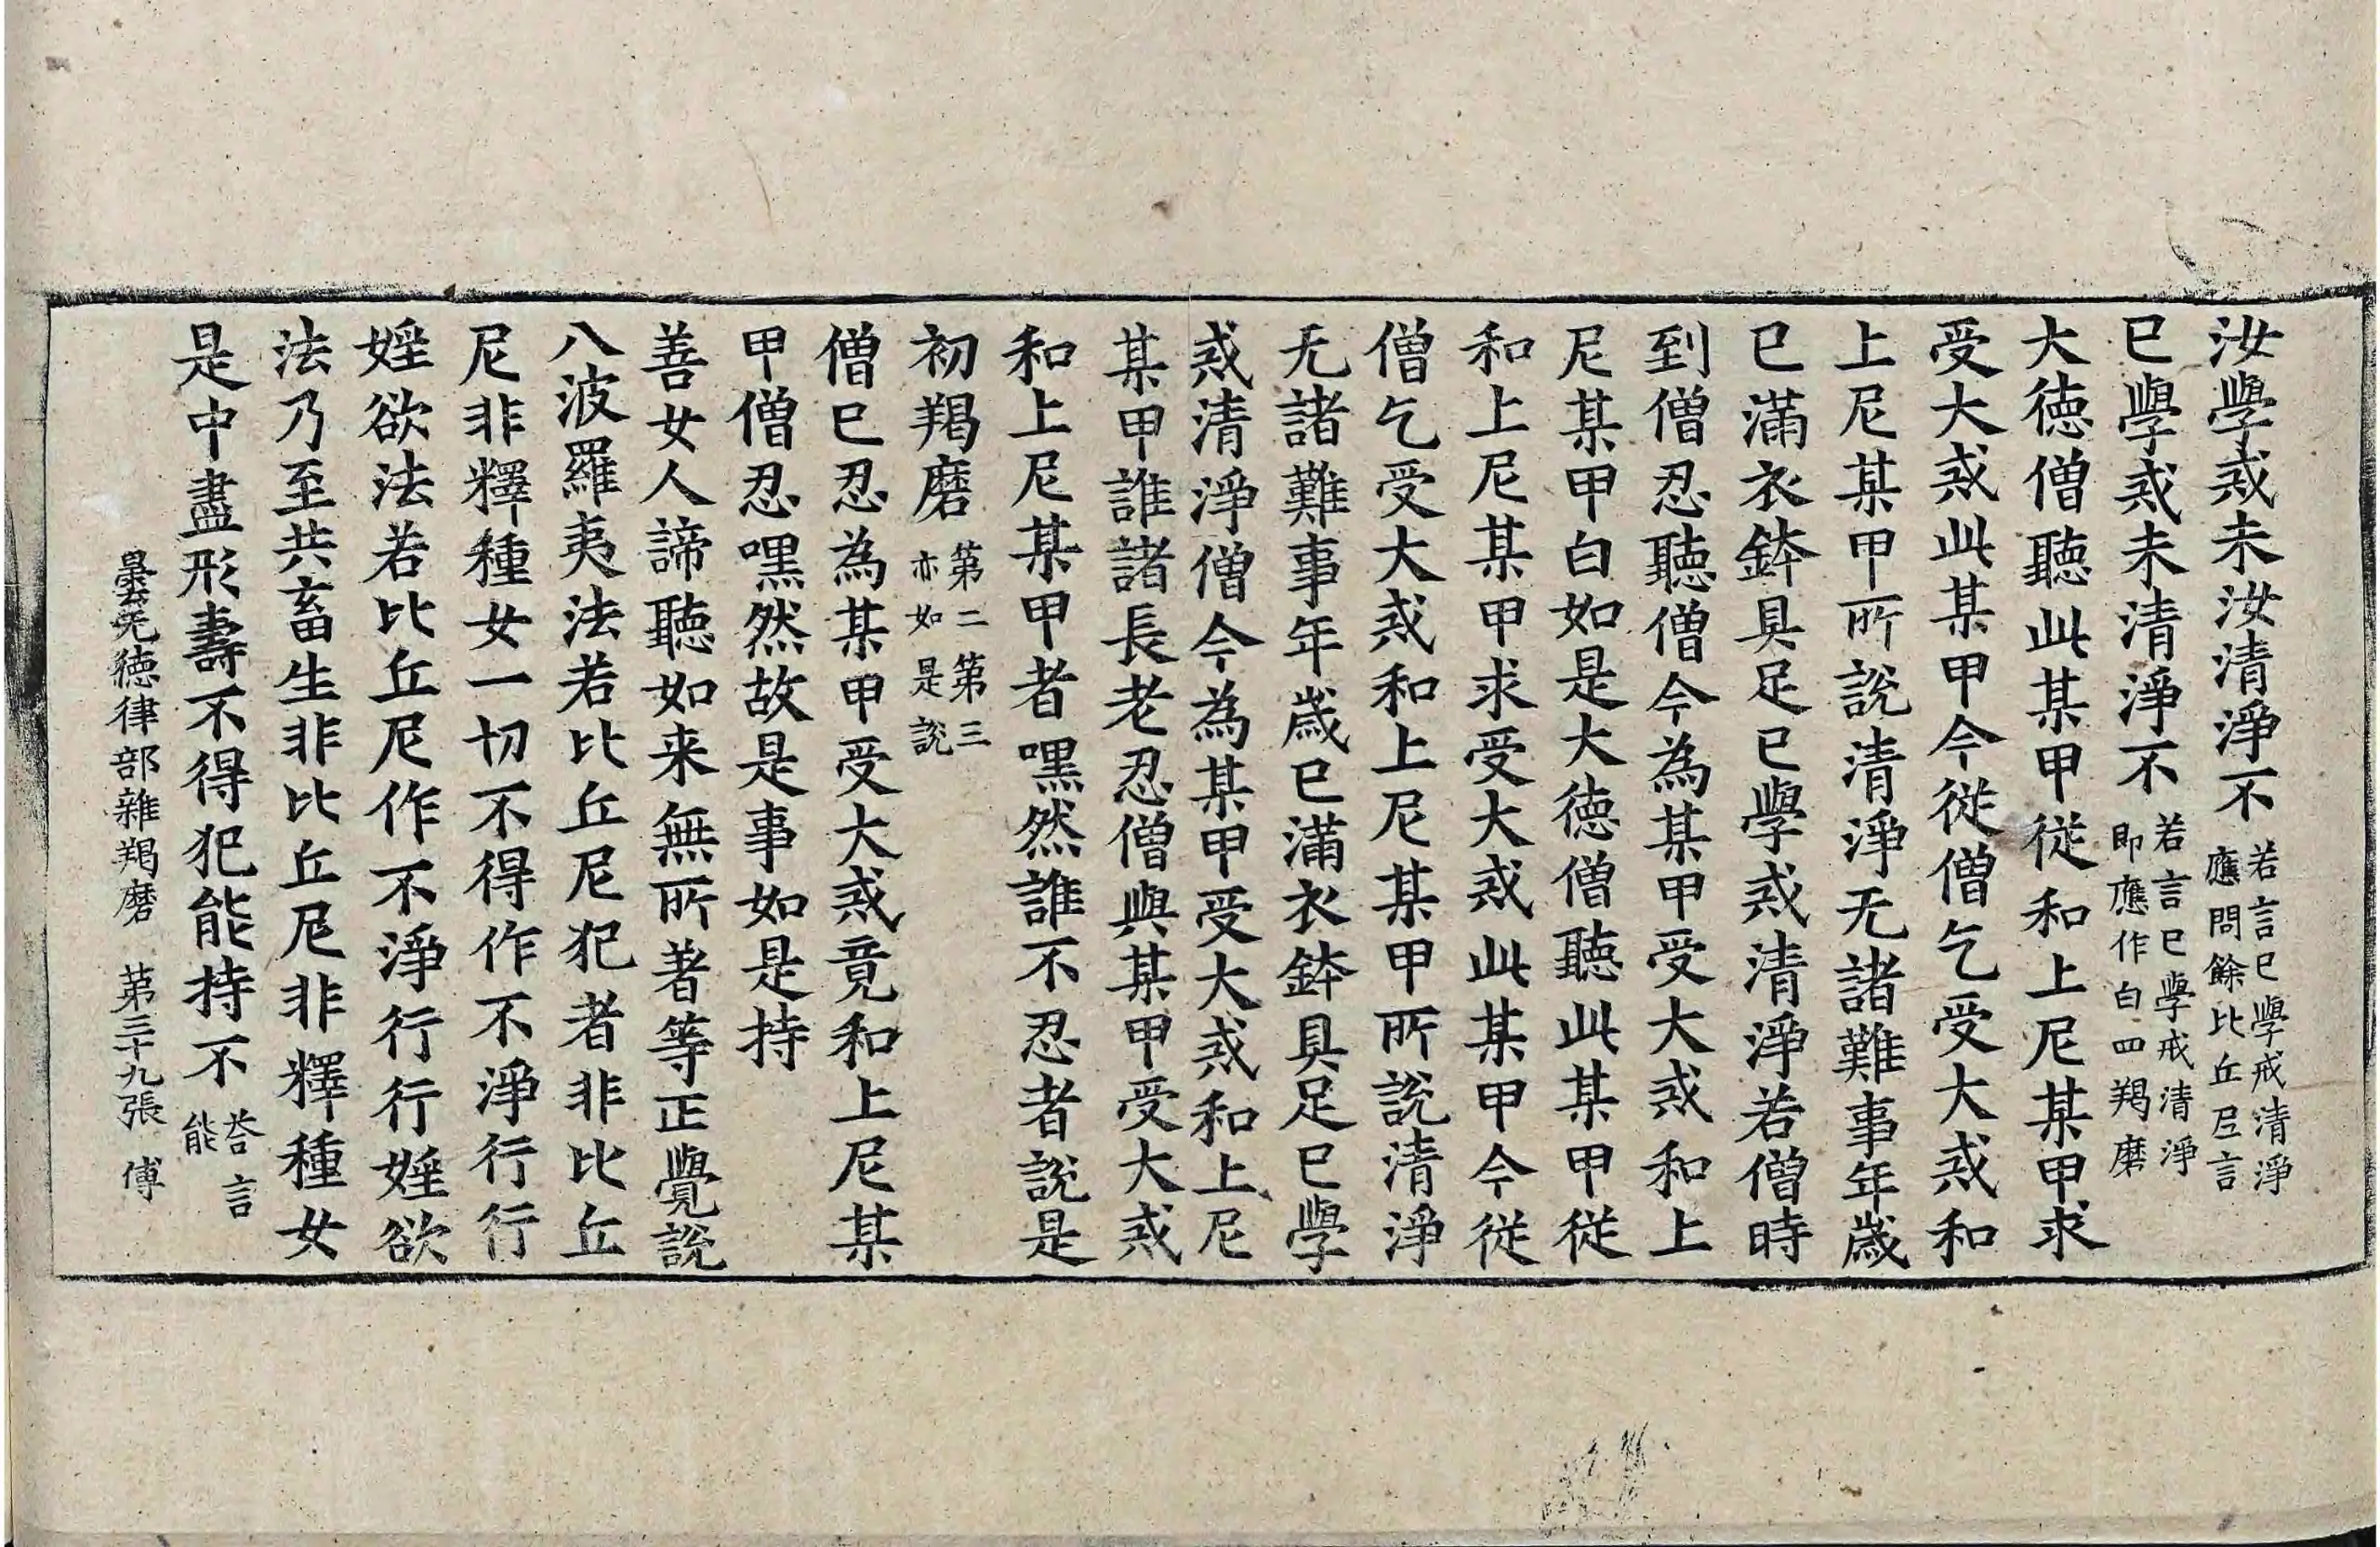 汝學戒未汝清淨不若言已學戒清淨應問餘比丘尼言
已學戒未清淨不若言已學戒清淨即應作白四羯磨
大徳僧聽此某甲從和上尼某甲求
受大戒此某甲今從僧乞受大戒和
上尼某甲所說清淨无諸難事年歲
已滿衣鉢具足已學戒清淨若僧時
到僧忍聽僧今為某甲受大戒和上
尼某甲白如是大徳僧聽此某甲從
和上尼某甲求受大戒此某甲今從
僧乞受大戒和上尼某甲所說清淨
无諸難事年歲已滿衣鉢具足已學
戒清淨僧今為某甲受大戒和上尼
某甲誰諸長老忍僧與某甲受大戒
和上尼某甲者嘿然誰不忍者說是
初羯磨第二第三亦如是說
僧已忍為某甲受大戒竟和上尼某
甲僧忍嘿然故是事如是持
善女人諦聽如来無所著等正覺說
八波羅夷法若比丘尼犯者非比丘
尼非釋種女一切不得作不淨行行
婬欲法若比丘尼作不淨行行婬欲
法乃至共畜生非比丘尼非釋種女
是中盡形壽不得犯能持不荅言能
曇无徳律部雜羯磨 第三十九張 傅